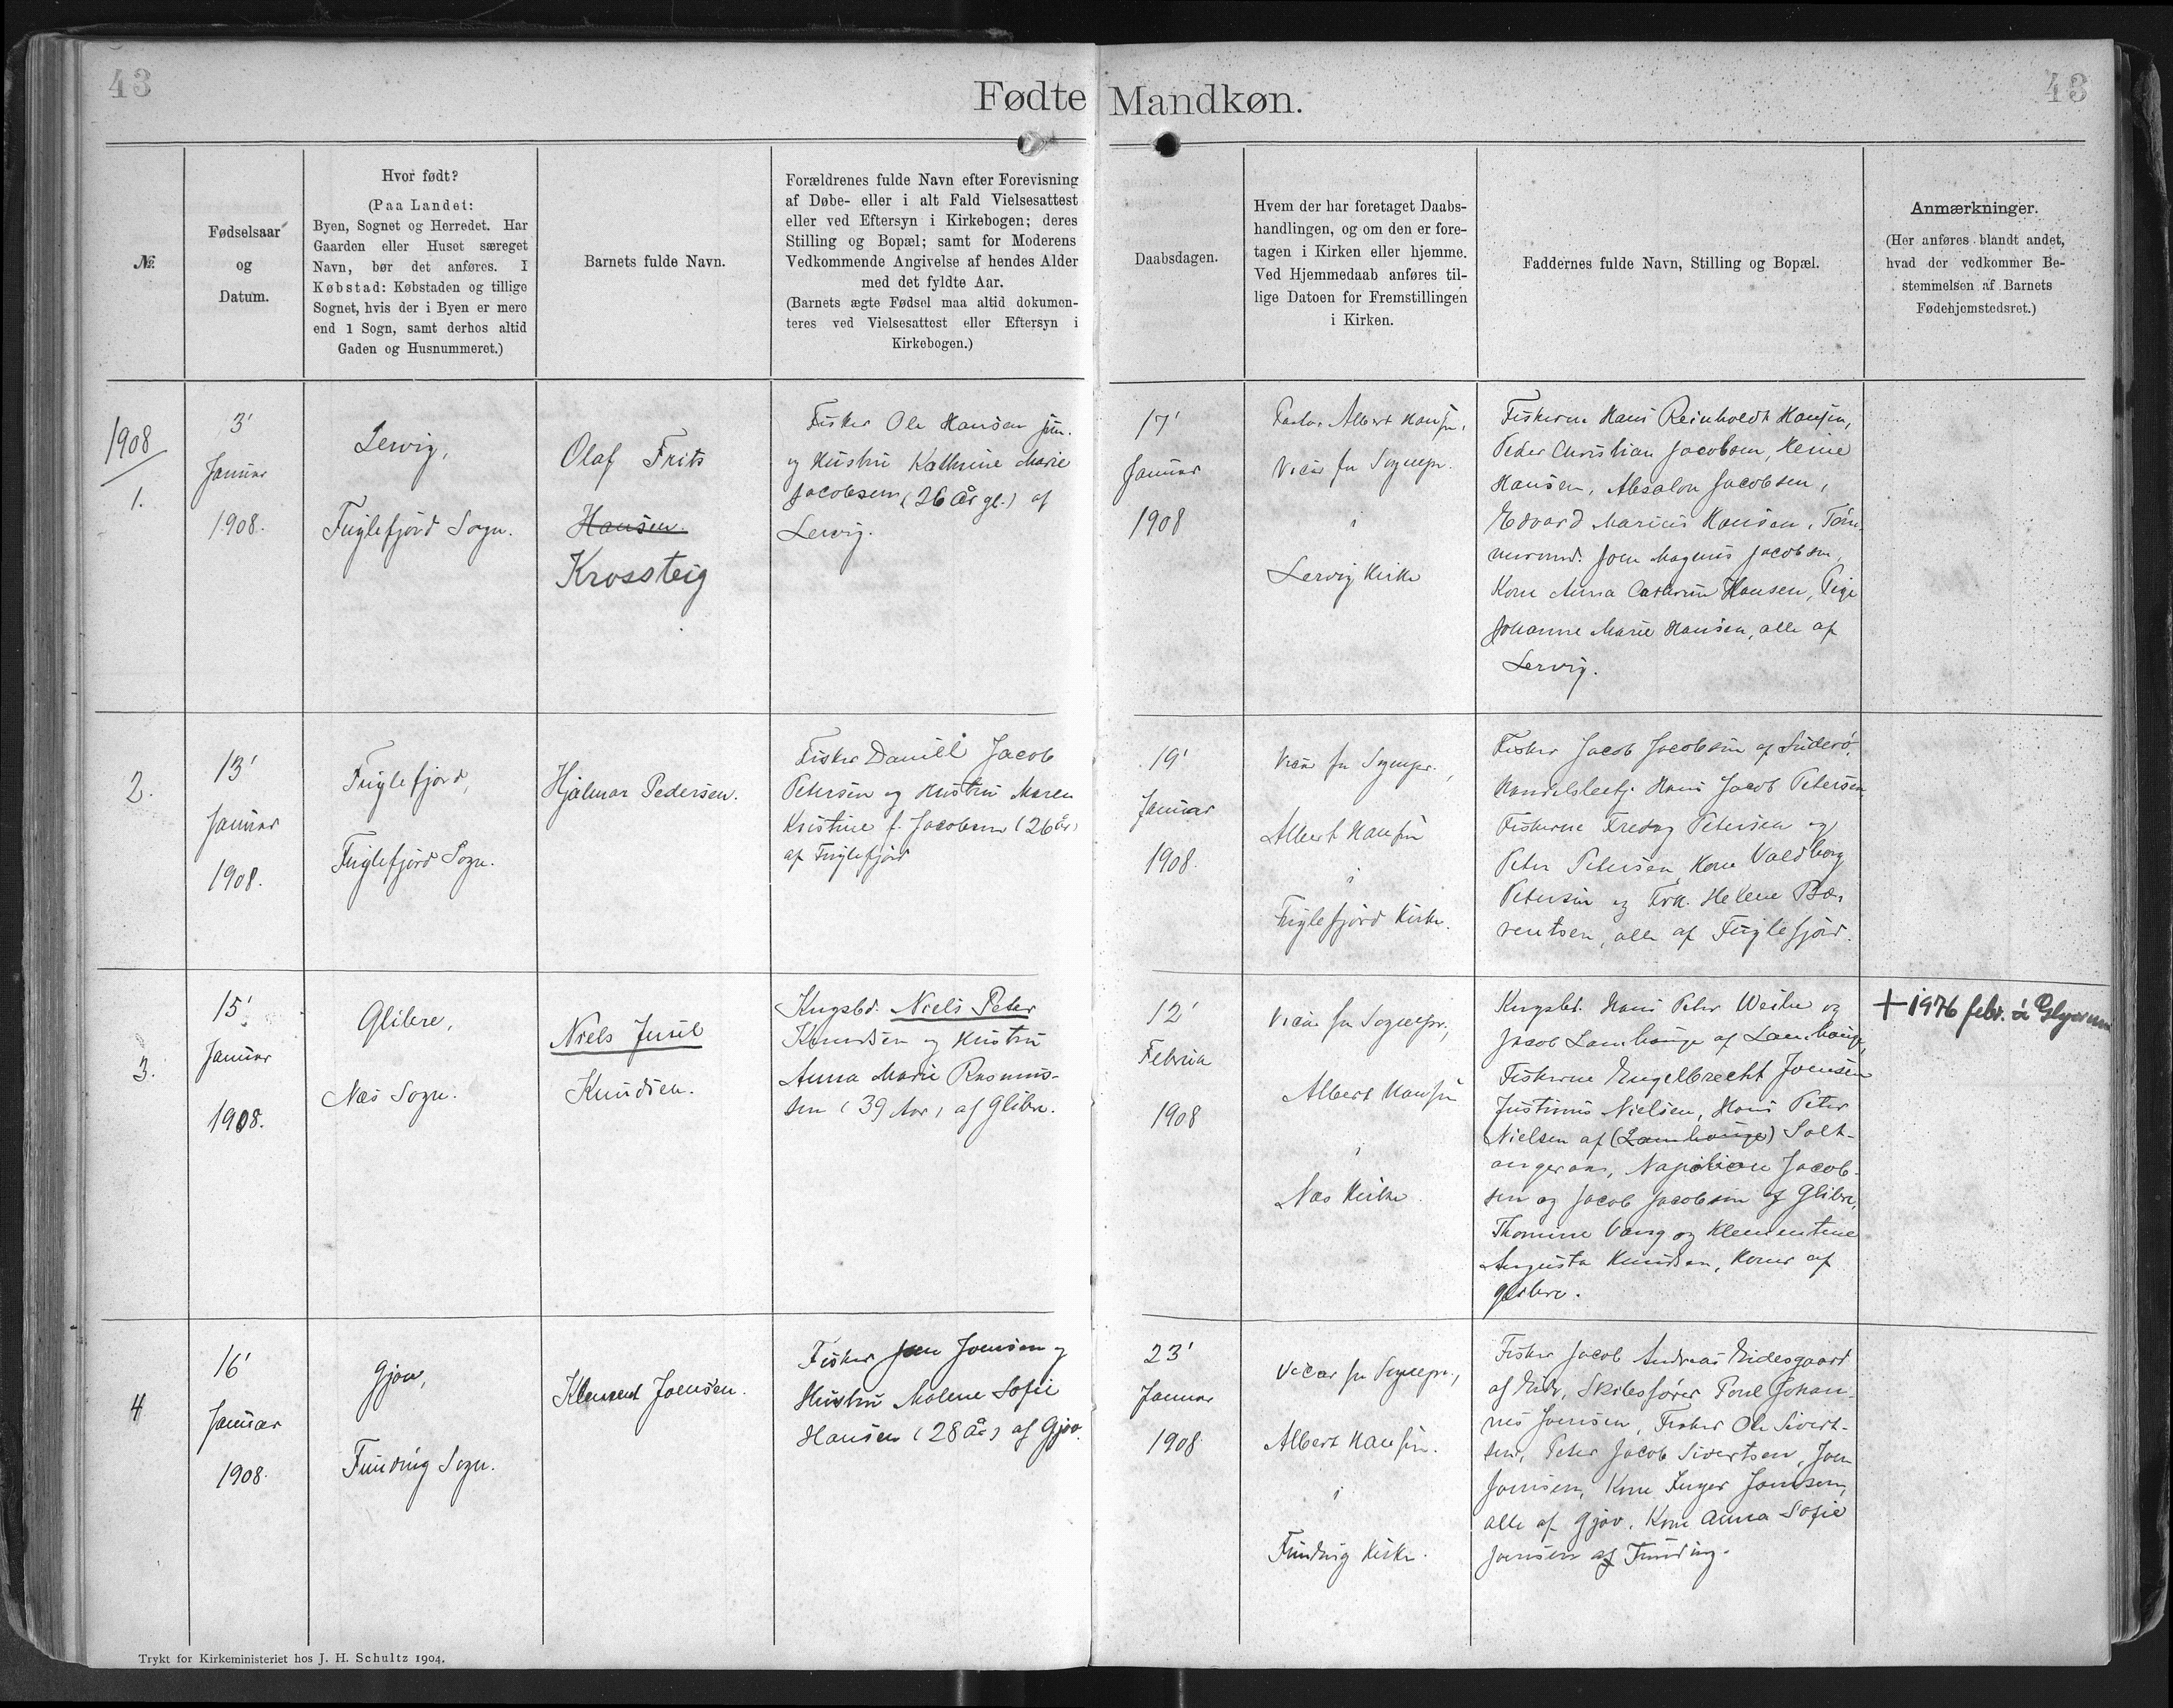 43
Fødte Mandkøn.
43
№
Fødselsaar
og
Datum.
Hvor født?
(Paa Landet:
Byen, Sognet og Herredet. Har
Gaarden eller Huset særeget
Navn, bør det anføres. I
Købstad: Købstaden og tillige
Sognet, hvis der i Byen er mere
end 1 Sogn, samt derhos altid
Gaden og Husnummeret.)
Barnets fulde Navn.
Forældrenes fulde Navn efter Forevisning
af Døbe- eller i alt Fald Vielsesattest
eller ved Eftersyn i Kirkebogen; deres
Stilling og Bopæl; samt for Moderens
Vedkommende Angivelse af hendes Alder
med det fyldte Aar.
(Barnets ægte Fødsel maa altid dokumen-
teres ved Vielsesattest eller Eftersyn i
Kirkebogen.)
Daabsdagen.
Hvem der har foretaget Daabs-
handlingen, og om den er fore-
tagen i Kirken eller hjemme.
Ved Hjemmedaab anføres til-
lige Datoen for Fremstillingen
i Kirken.
Faddernes fulde Navn, Stilling og Bopæl.
Anmærkninger.
(Her anføres blandt andet,
hvad der vedkommer Be-
stemmelsen af Barnets
Fødehjemstedsret.)
1908
1.
3'
Januar
1908.
Lervig,
Fuglefjord Sogn.
Olaf Frits
Hansen.
Krossteig
Fisker Ole Hansen jun.
og Hustru Kathrine Marie
Jacobsen (26 år gl.) af
Lervig.
17'
Januar
1908
Pastor Albert Hansen,
Vicar for Sognepr.
i
Lervig Kirke
Fiskerne Hans Reinholdt Hansen,
Peder Christian Jacobsen, Heine
Hansen, Absalon Jacobsen,
Edvard Marius Hansen, Tøm-
mermd. Joen Magnus Jacobsen,
Kone Anna Cathrine Hansen, Pige
Johanne Marie Hansen, alle af
Lervig.
2.
13'
Januar
1908.
Fuglefjord,
Fuglefjord Sogn.
Hjalmar Pedersen.
Fisker Daniel Jacob
Petersen og Hustru Maren
Kristine f. Jacobsen (26 år)
af Fuglefjord
19'
Januar
1908.
Vicar for Sognepr.,
Albert Hansen
i
Fuglefjord Kirke.
Fisker Jacob Jacobsen af Suderø,
Handelsbetj. Hans Jacob Petersen
Fiskerne Fredag Petersen og
Peter Petersen, Kone Valdborg
Petersen og Frk. Helene Bæ-
rentsen, alle af Fuglefjord.
3.
15'
Januar
1908.
Glibre,
Næs Sogn.
Niels Juul
Knudsen.
Kngsbd. Niels Peter
Knudsen og Hustru
Anna Marie Rasmus-
sen (39 Aar) af Glibre.
12'
Februar
1908
Vicar for Sognepr.,
Albert Hansen
i
Næs Kirke.
Kngsbd. Hans Peter Weihe og
Jacob Lamhauge af Lamhauge,
Fiskerne Engelbrecht Joensen
Justinus Nielsen, Hans Peter
Nielsen af (Lamhauge) Salt-
angerane, Napoleon Jacob-
sen og Jacob Jacobsen af Glibre,
Thomine Vang og Klementine
Augusta Knudsen, Koner af
Glibre.
+ 1976 febr. á
4
16'
Januar
1908.
Gjov,
Funding Sogn.
Klement Joensen.
Fisker Joen Joensen og
Hustru Malene Sofie
Hansen (28 År) af Gjov.
23'
Januar
1908
Vicar for Sognepr.,
Albert Hansen.
i
Funding Kirke.
Fisker Jacob Andreas Eidesgaard
af Eide, Skibsfører Poul Johan-
nes Joensen, Fisker Ole Sivert-
sen, Peter Jacob Sivertsen, Joen
Joensen, Kone Inger Joensen,
alle af Gjov. Kone Anna Sofie
Joensen af Funding.
Trykt for Kirkeministeriet hos J. H. Schultz 1904.